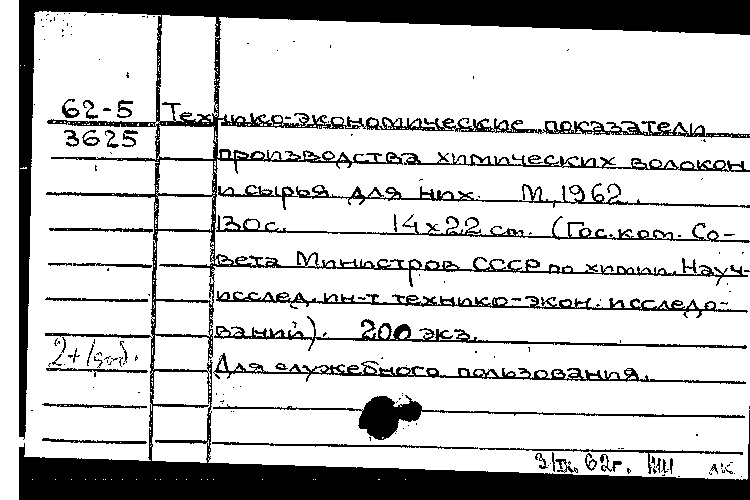 62-5 Технико-экономические показатели
3625
производства химических волокон
и сырья для них. М., 1962.
130с. 14x22 см. (Гос. ком. Со-
вета Министров СССР по химии. Науч-
исслед. ин-т технико-экон. исследо-
ваний). 200 экз.
2+1
Для служебного пользования.
9/IX. 62г. АК